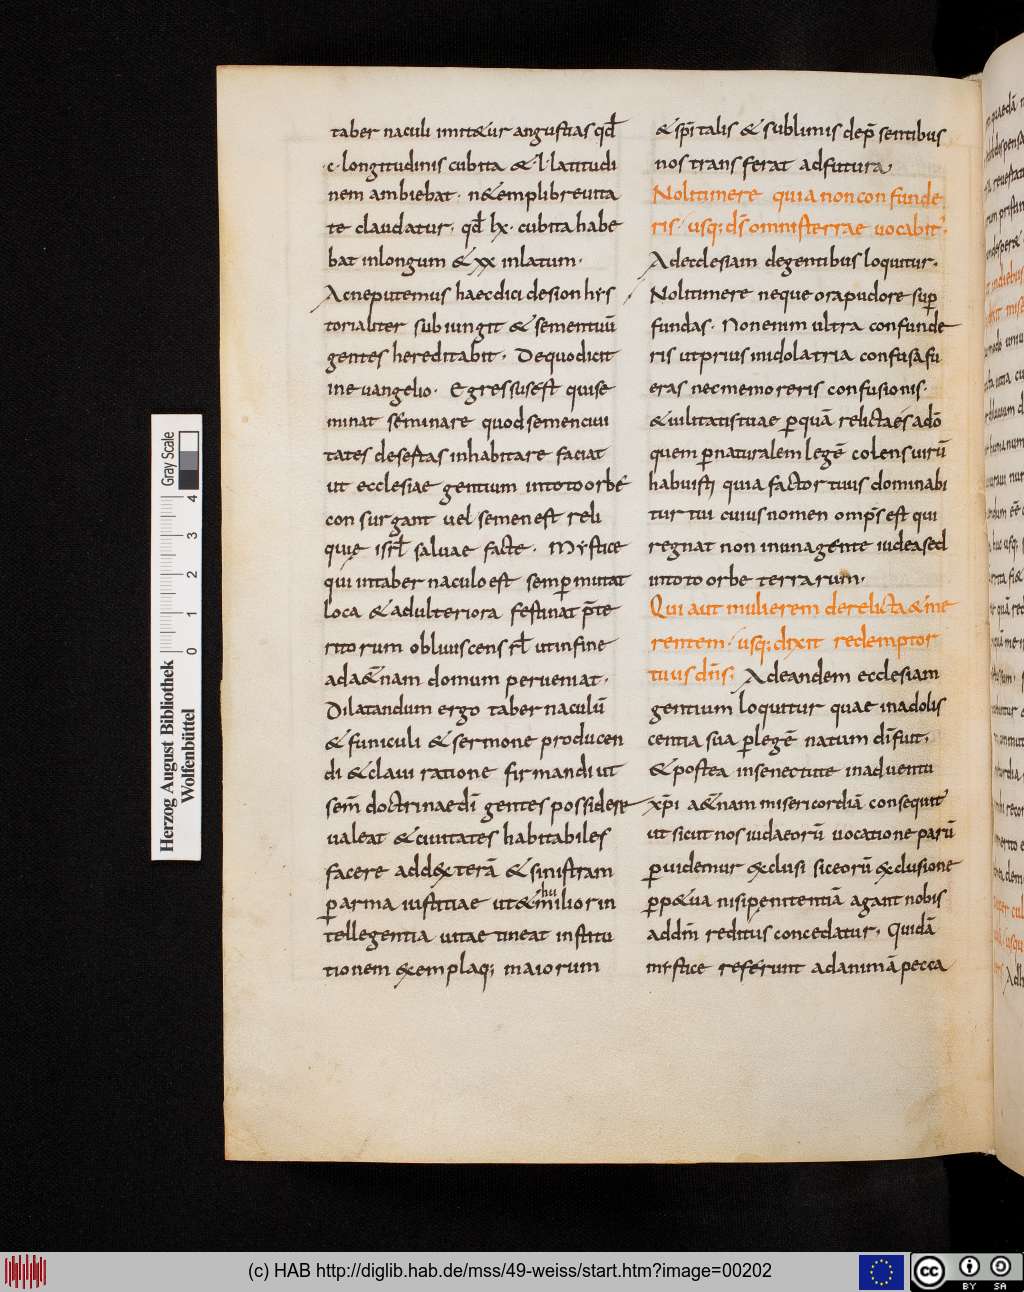 taber naculi imit&ur angustias qđ
·c· longitudinis cubita & ·l· latitudi
nem ambiebat · n& emplibreuita
te claudatur · qđ lx · cubita habe
bat inlongum & xx inlatum ·
Acneputemus haecdici desion hys
torialiter subiungit & sementuū
gentes hereditabit · Dequodicit
ineuangelio · Egressusest quise
minat seminare quodsemencui
tates desertas inhabitare faciat
ut ecclesiae gentium intotoorbe
consurgant uel semenest reli
quie isrł saluae facte · Mystice
qui intabernaculoest semp mutat
loca & adulteriora festinat p̄te
ritorum obliuiscens rł utinfine
ada&nam domum perueniat ·
Dilatandum ergo tabernaculū
& funiculi & sermone producen
di & claui ratione firmandi ut
sem̄ doctrinaedi gentes possidere
ualeat & ciuitates habitabiles
facere add&xterā & sinistram
p arma iustitiae ut&hu miliorin
tellegentia uitae tineat institu
tionem &xemplaq; maiorum
& spītalis & sublimis dep̄sentibus
nos transferat adfutura
Nolitimere quia nonconfunde
ris · usq; ds omnisterrae uocabit ·
Adecclesiam degentibus loquitur ·
Nolitimere neque orapudore sup
fundas · Nonenim ultra confunde
ris utprius inidolatria confusafu
eras necmemoreris confusionis ·
& uilitatistuae p quā relictaesadō
quem p naturalem legē colensuirū
habuisti quia factor tuus dominabi
tur tui cuius nomen omps est qui
regnat non inunagente iudeased
intoto orbe terrarum ·
Qui aut mulierem derelicta & me
rentem · usq; dixit redemptor
tuus dn̄s · Adeandem ecclesiam
gentium loquitur quae inadolis
centia sua plegē natum dīfuit ·
& postea insenectute inaduentu
xp̄i a&nam misericordiā consequit
ut sicut nos iudaeorū uocatione parū
puidemur &xclusi siceorū &xclusione
pp&ua nisipenitentiā agant nobis
addm̄ reditus concedatur · Quidā
mystice referunt adanimā pecca
Herzog August Bibliothek
Wolfenbüttel
0 1 2 3 4
Gray Scale
(c) HAB http://diglib.hab.de/mss/49-weiss/start.htm?image=00202
cc BY SA